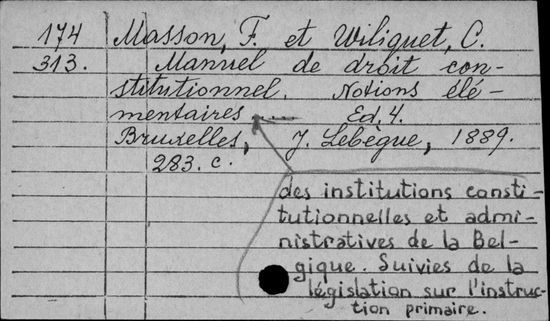 174 Masson, F. et Wiliquet, C.
313. Manuel de droit con-
stitutionnel. Notions élé-
mentaires ..... Ed. 4.
Bruxelles, J. Lebègue, 1889.
283. c.
des institutions consti-
tutionnelles et admi-
nistratives de la Bel-
gique. Suivies de la
législation sur l'instruc-
tion primaire.